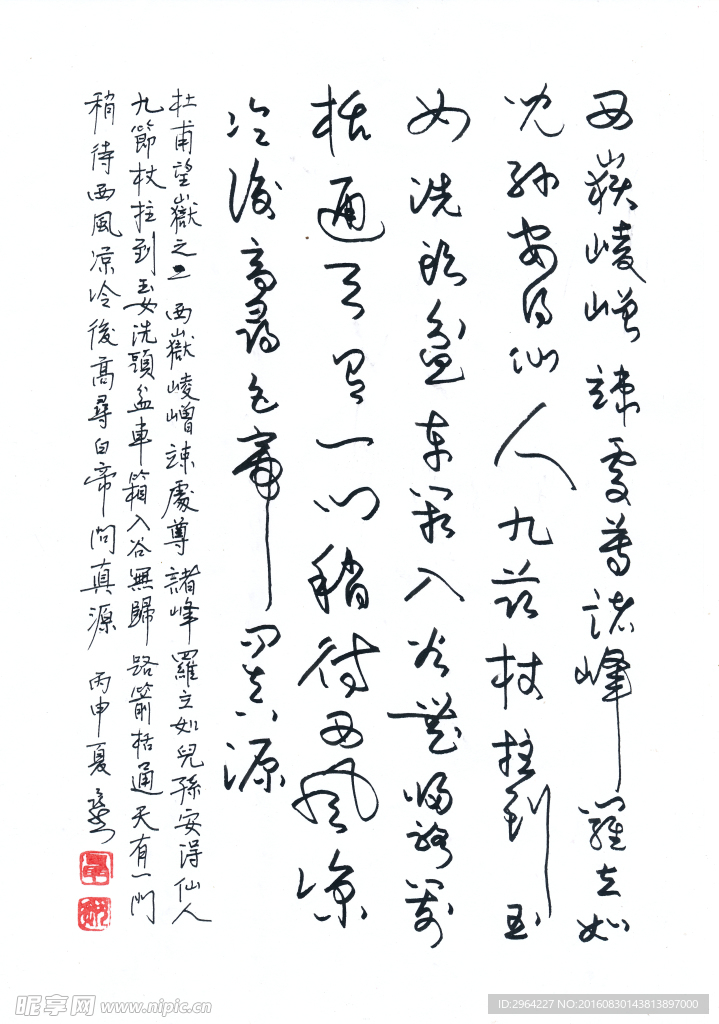 西嶽崚嶒竦處尊諸峰羅立如
兒孫安得仙人九節杖拄到玉
女洗頭盆車箱入谷無歸路箭
栝通天有一门稍待西風凉
冷後高尋白帝问真源
杜甫望嶽之二 西嶽崚嶒竦處尊諸峰羅立如兒孫安得仙人
九節杖拄到玉女洗頭盆車箱入谷無歸路箭栝通天有一門
稍待西風凉冷後高尋白帝問真源 丙申夏
昵享网 www.nipic.cn
ID:2964227 NO:20160830143813897000